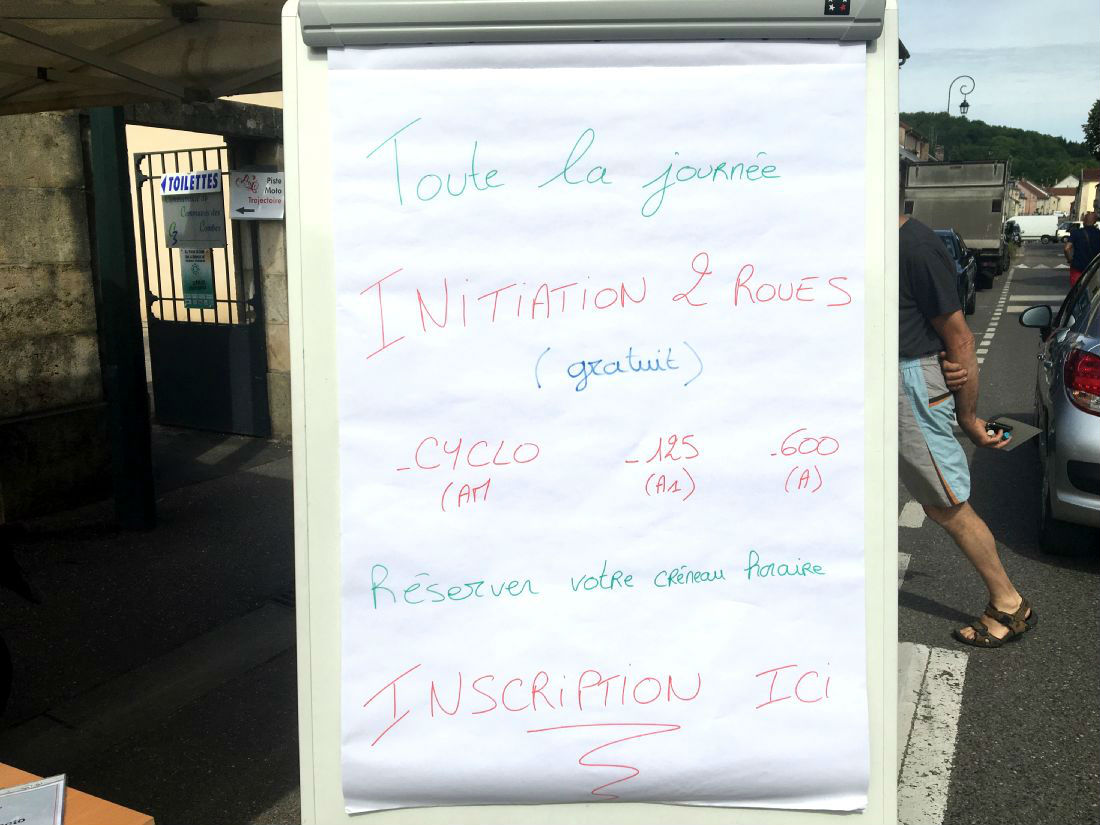 Toute la journée
INITIATION 2 ROUES
(gratuit)
-CYCLO -125 -600
(AM (A1) (A)
Réserver votre créneau horaire
INSCRIPTION ICI
TOILETTES
Communes des
Combes
Piste
Moto
Trajectoire